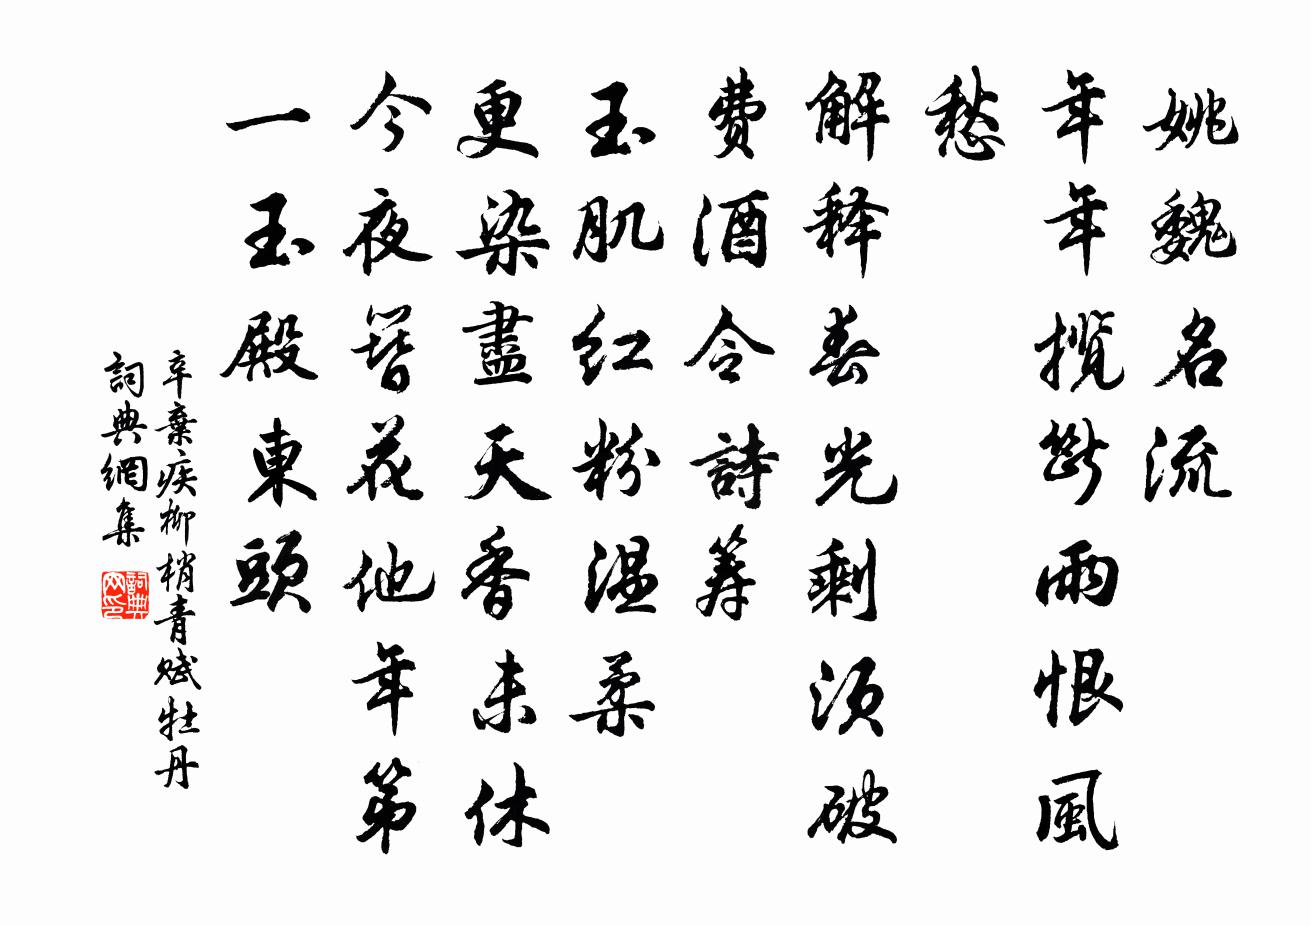 姚魏名流
年年揽斷雨恨風
愁
解释春光剩须破
费酒令詩筹
玉肌红粉温柔
更染盡天香未休
今夜簪花他年第
一玉殿東頭
辛棄疾柳梢青赋牡丹
詞典網集
詞典网印